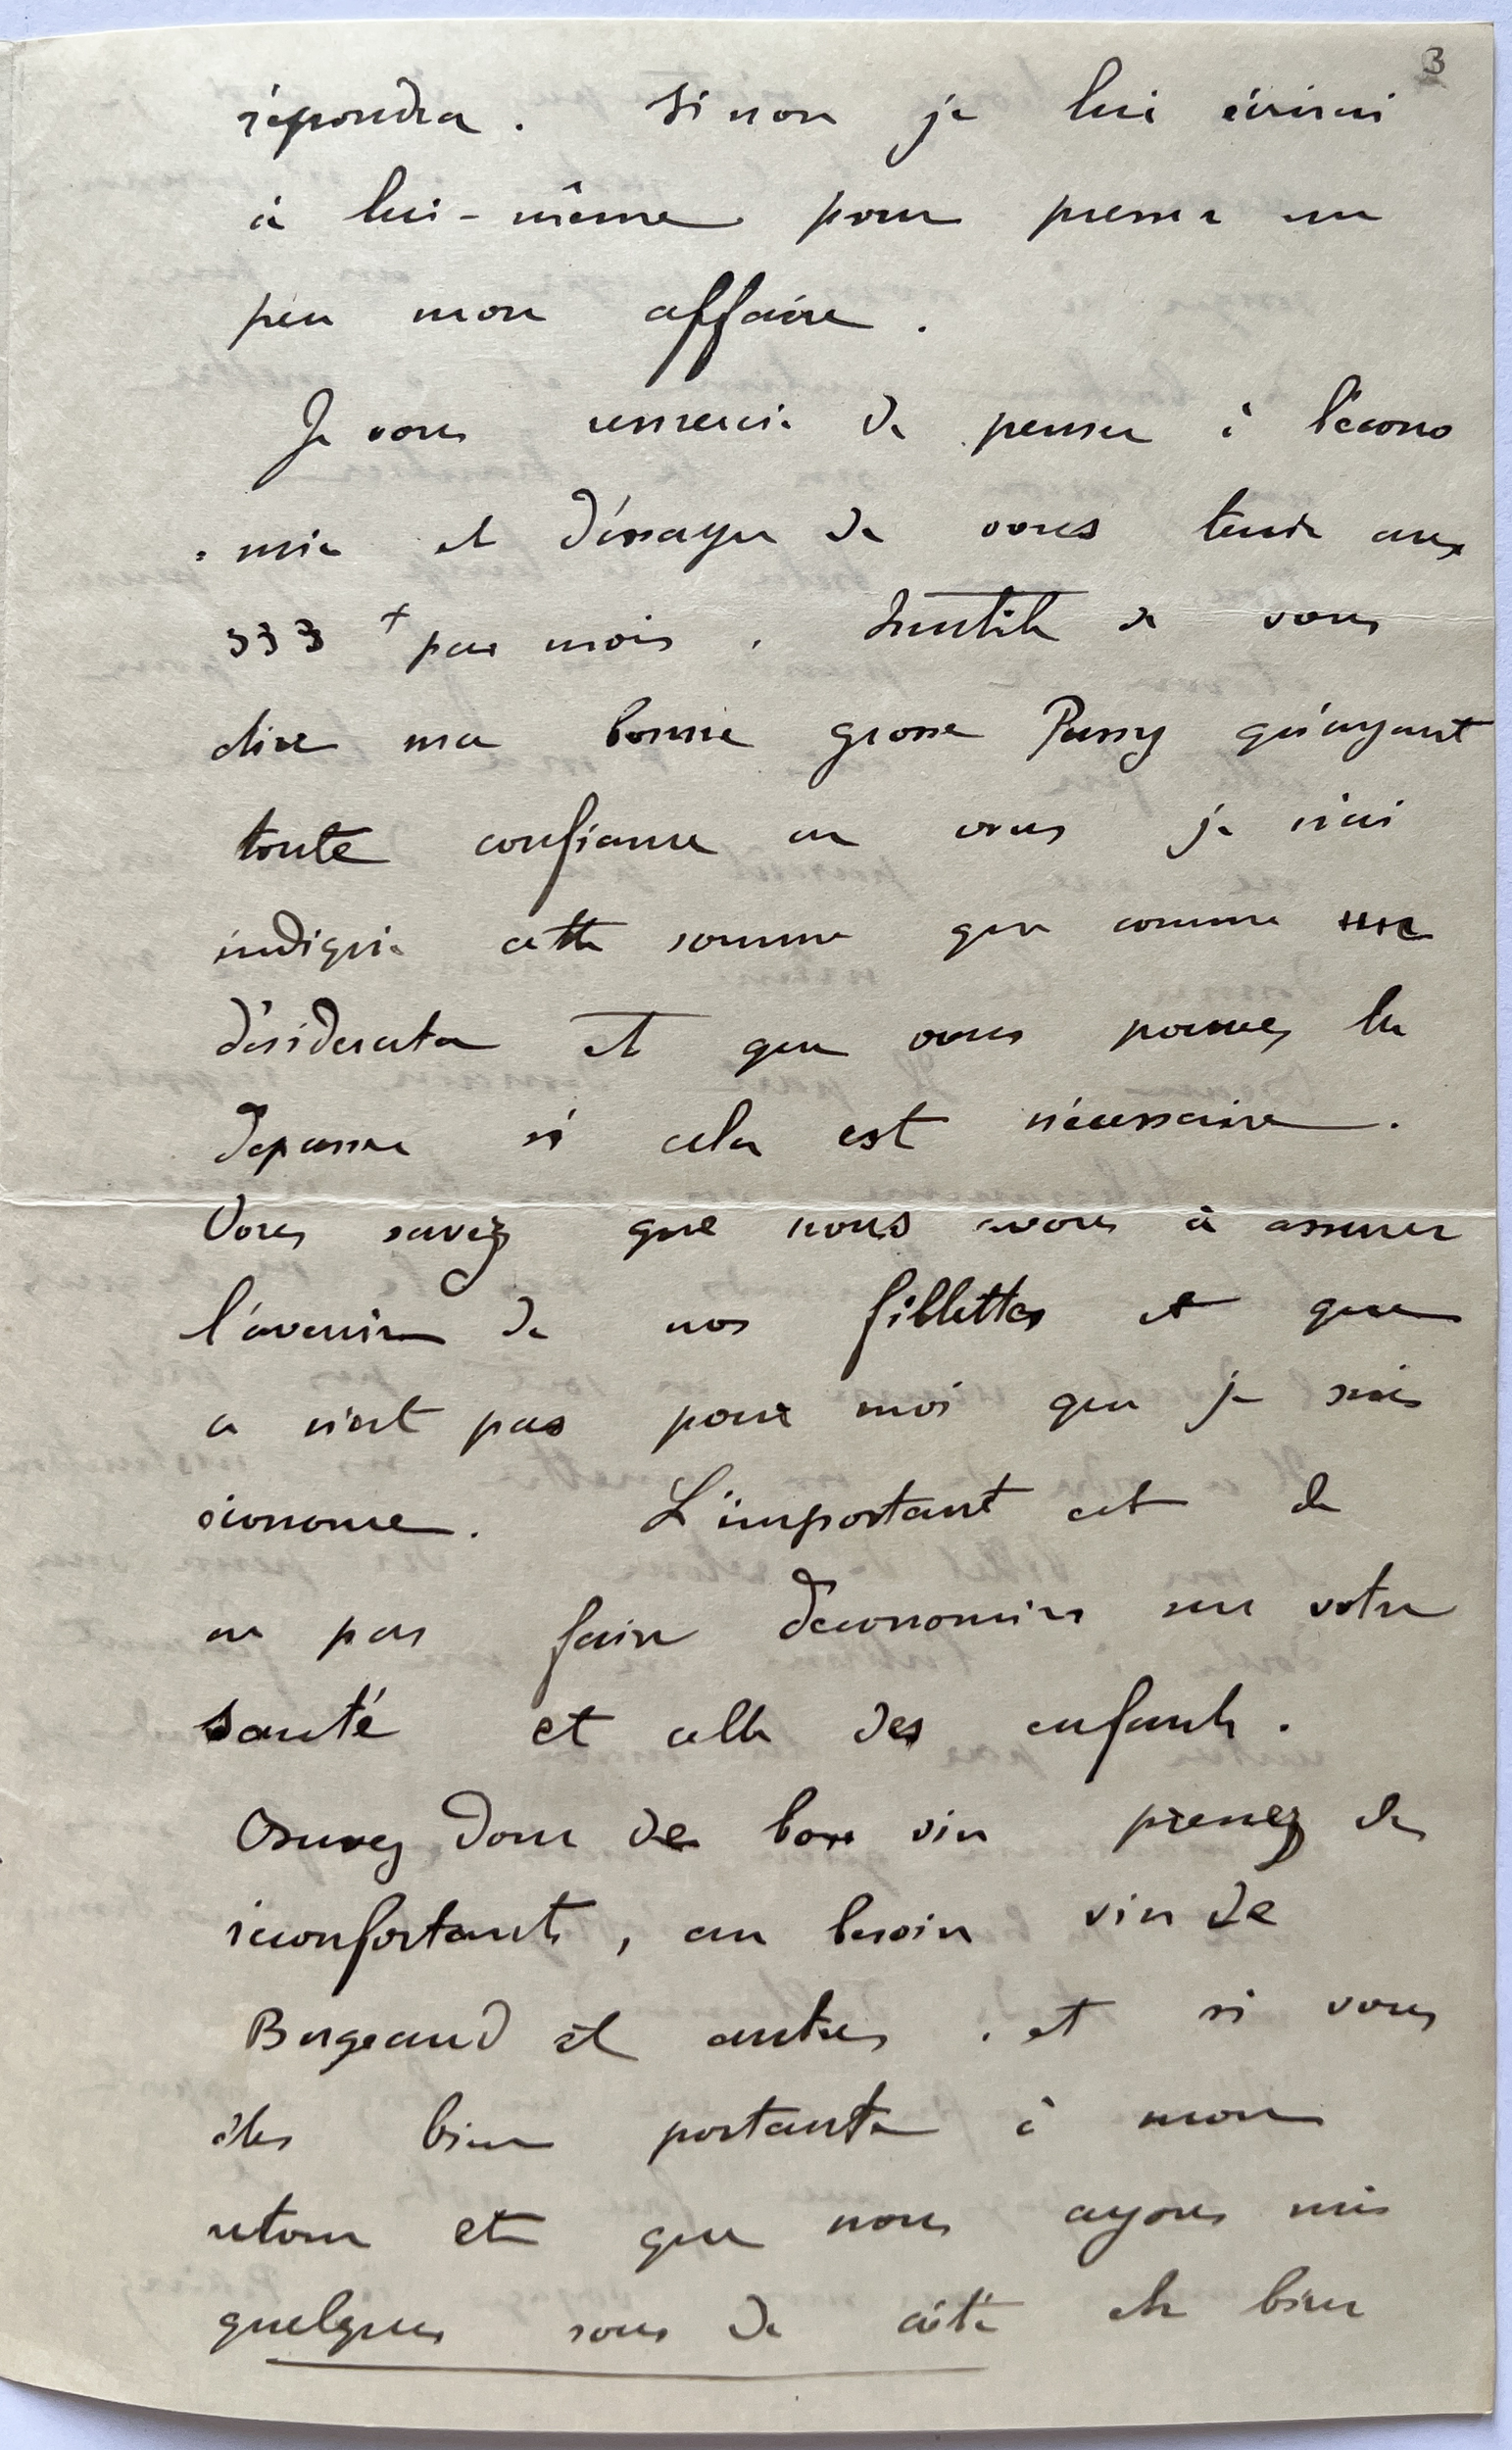 3
répondra. Sinon je lui écrirai
à lui-même pour presser un
peu mon affaire.
Je vous remercie de penser à l'écono
=mie et d'essayer de vous tenir aux
333 f par mois. Inutile de vous
dire ma bonne grosse Pussy qu'ayant
toute confiance en vous je n'ai
indiqué cette somme que comme
désiderata et que vous pouvez la
dépasser si cela est nécessaire.
Vous savez que nous avons à assurer
l'avenir de nos fillettes et que
ce n'est pas pour moi que je suis
économe. L'important est de
ne pas faire d'économies sur votre
santé et celle des enfants.
donc de bon vin prenez des
réconfortants, au besoin vin de
Bugeaud et autres. et si vous
êtes bien portante à mon
retour et que nous ayons mis
quelques sous de côté eh bien